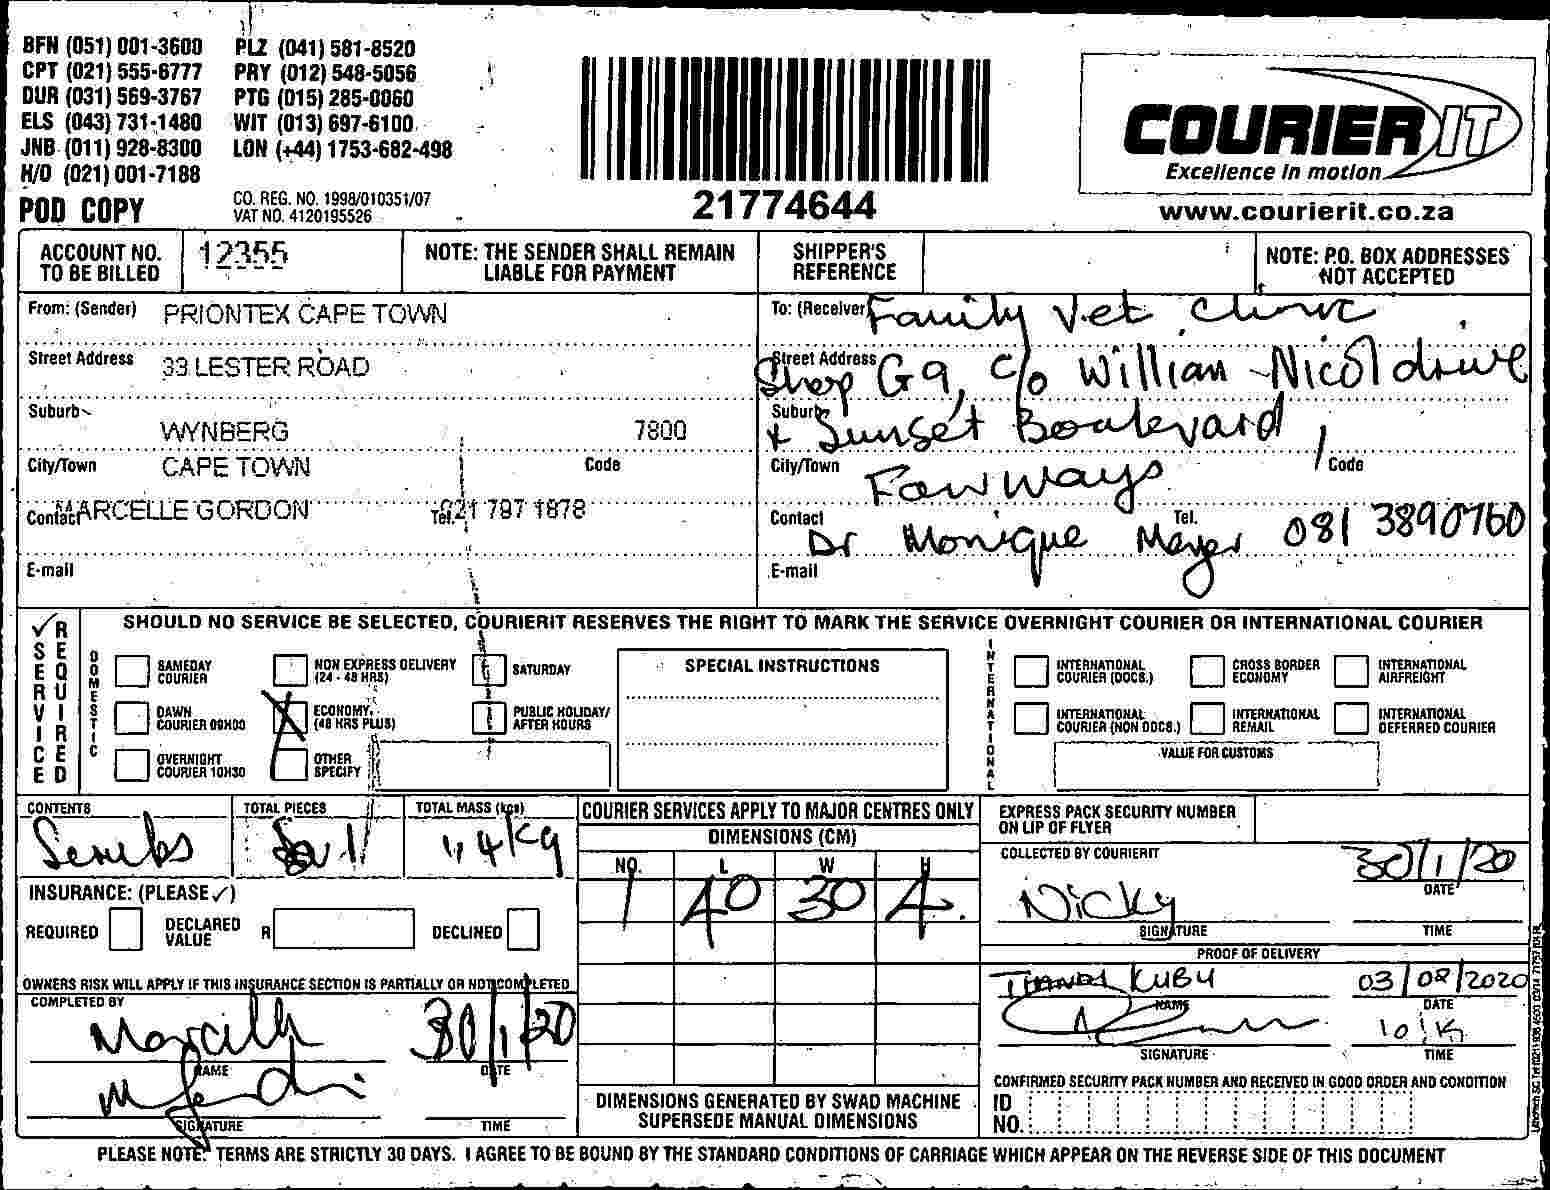 BFN (051) 001-3600 PLZ (041) 581-8520
CPT (021) 555-6777 PRY (012) 548-5056
DUR (031) 569-3767 PTG (015) 285-0060
ELS (043) 731-1480 WIT (013) 697-6100
JNB (011) 928-8300 LON (+44) 1753-682-498
H/O (021) 001-7188
POD COPY
CO. REG. NO. 1998/010351/07
VAT NO. 4120195526
21774644
COURIER IT
Excellence in motion
www.courierit.co.za
ACCOUNT NO. TO BE BILLED 12355
NOTE: THE SENDER SHALL REMAIN LIABLE FOR PAYMENT
SHIPPER'S REFERENCE
NOTE: P.O. BOX ADDRESSES NOT ACCEPTED
From: (Sender) PRIONTEX CAPE TOWN
Street Address 33 LESTER ROAD
Suburb WYNBERG 7800
City/Town CAPE TOWN Code
Contact MARCELLE GORDON Tel. 021 797 1878
E-mail
To: (Receiver) Family Vet Clinic
Street Address Shop G9, c/o William Nicol drive
Suburb + Sunset Boulevard,
City/Town Fourways Code
Contact Dr Monique Meyer Tel. 081 3890760
E-mail
✓ SERVICE REQUIRED
SHOULD NO SERVICE BE SELECTED, COURIERIT RESERVES THE RIGHT TO MARK THE SERVICE OVERNIGHT COURIER OR INTERNATIONAL COURIER
DOMESTIC
SAMEDAY COURIER
NON EXPRESS DELIVERY (24 - 48 HRS)
SATURDAY
DAWN COURIER 09H00
ECONOMY (48 HRS PLUS)
PUBLIC HOLIDAY/ AFTER HOURS
OVERNIGHT COURIER 10H30
OTHER SPECIFY
SPECIAL INSTRUCTIONS
INTERNATIONAL
INTERNATIONAL COURIER (DOCS.)
CROSS BORDER ECONOMY
INTERNATIONAL AIRFREIGHT
INTERNATIONAL COURIER (NON DOCS.)
INTERNATIONAL REMAIL
INTERNATIONAL DEFERRED COURIER
VALUE FOR CUSTOMS
CONTENTS Scrubs
TOTAL PIECES 1
TOTAL MASS (kgs) 1,4kg
INSURANCE: (PLEASE ✓)
REQUIRED DECLARED VALUE R DECLINED
OWNERS RISK WILL APPLY IF THIS INSURANCE SECTION IS PARTIALLY OR NOT COMPLETED
COMPLETED BY
30/1/20
NAME DATE
SIGNATURE TIME
COURIER SERVICES APPLY TO MAJOR CENTRES ONLY
DIMENSIONS (CM)
NO. L W H
1 40 30 4
DIMENSIONS GENERATED BY SWAD MACHINE
SUPERSEDE MANUAL DIMENSIONS
EXPRESS PACK SECURITY NUMBER ON LIP OF FLYER
COLLECTED BY COURIERIT
Nicky 30/1/20
SIGNATURE DATE
TIME
PROOF OF DELIVERY
KUBU 03/02/2020
NAME DATE
SIGNATURE TIME
CONFIRMED SECURITY PACK NUMBER AND RECEIVED IN GOOD ORDER AND CONDITION
ID NO.
PLEASE NOTE: TERMS ARE STRICTLY 30 DAYS. I AGREE TO BE BOUND BY THE STANDARD CONDITIONS OF CARRIAGE WHICH APPEAR ON THE REVERSE SIDE OF THIS DOCUMENT